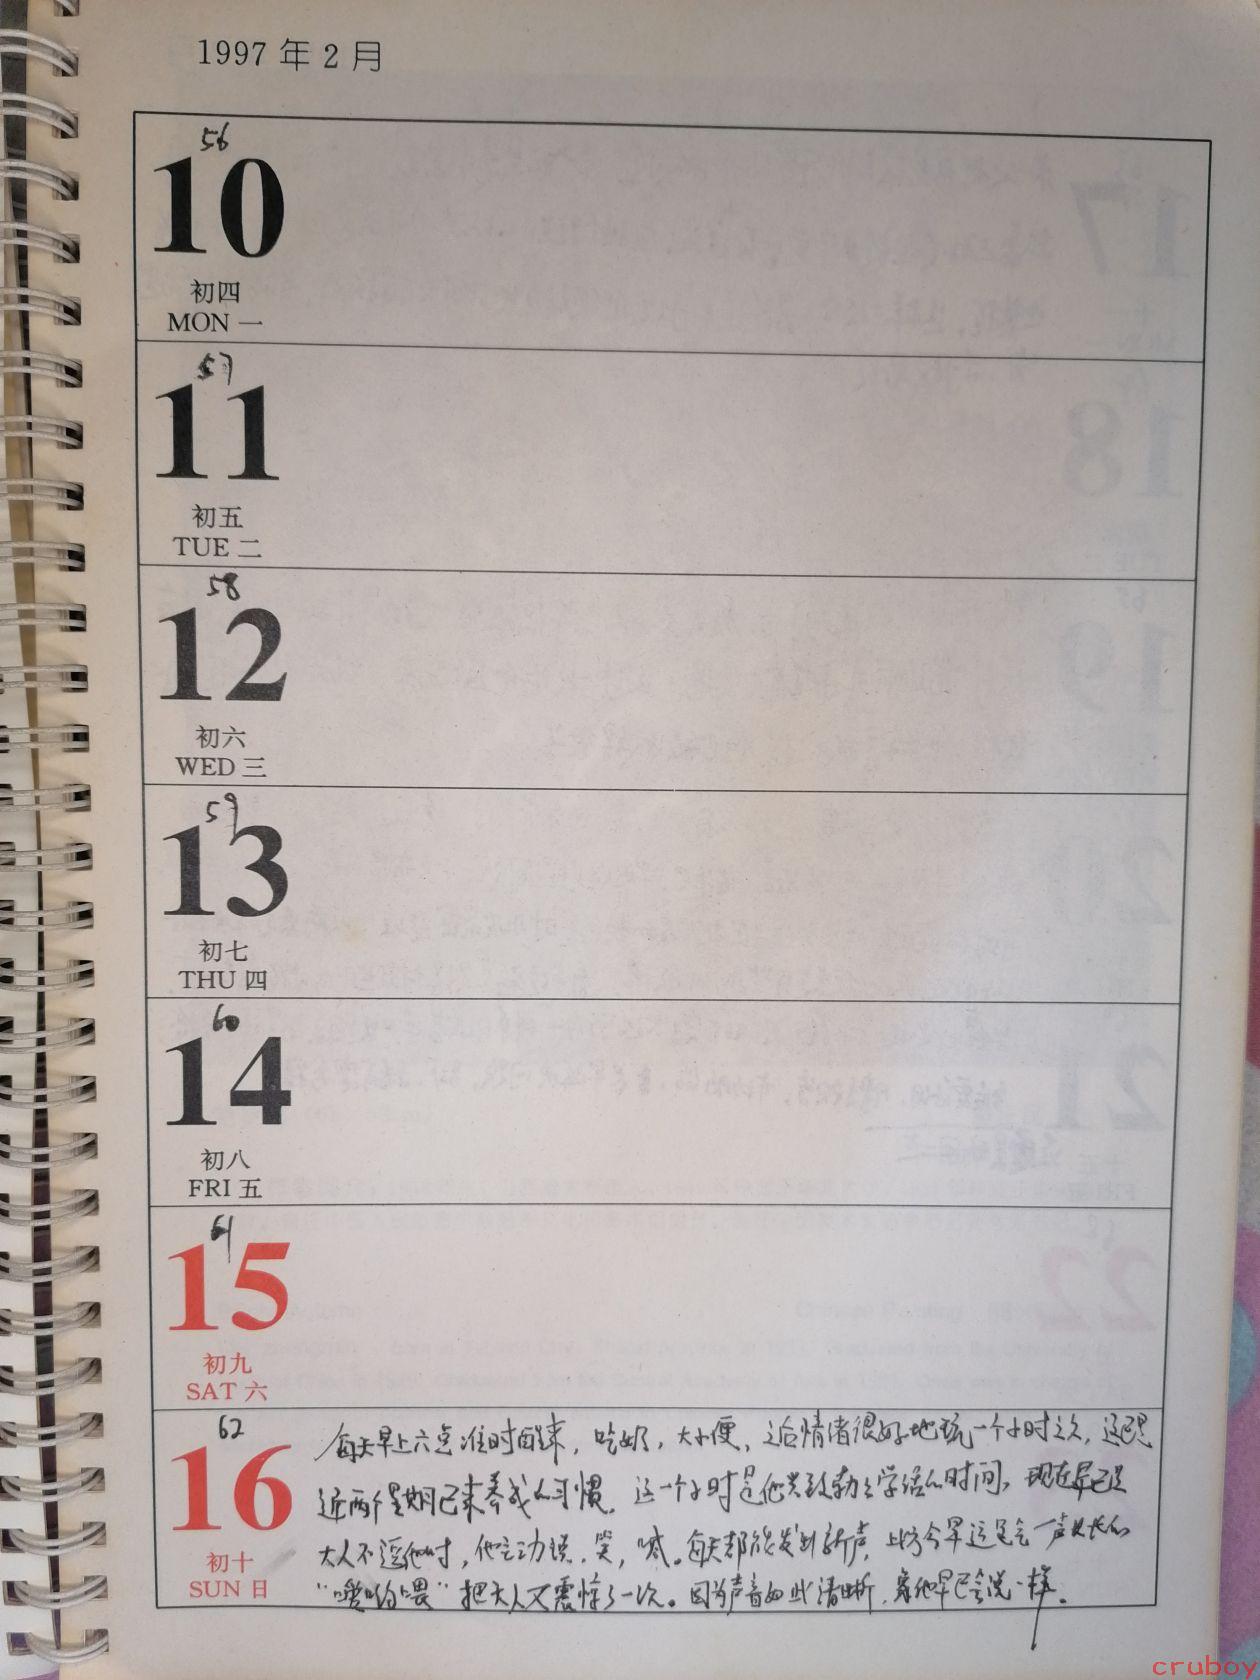 1997 年 2 月
56
10
初四
MON 一
57
11
初五
TUE 二
58
12
初六
WED 三
59
13
初七
THU 四
60
14
初八
FRI 五
61
15
初九
SAT 六
62
16
初十
SUN 日
每天早上六点准时醒来，吃奶，大小便，之后情绪很好地玩一个小时之久，这已是
近两个星期已来养成的习惯。这一个小时是他兴致勃勃学话的时间，现在早已是
大人不逗他时，他主动说，笑，喊。每天都能发到新声，今早这是会一声长长的
“喂” 把大人又震惊了一次。因为声音如此清晰，像他早已会说一样。
cruboy